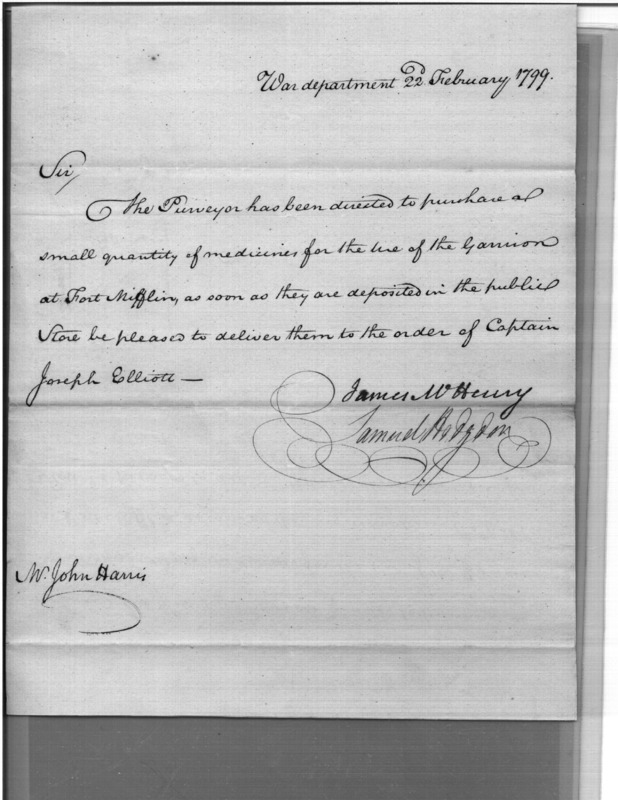 War department 22d February, 1799.
Sir,
The Purveyor has been directed to purchase a
small quantity of medicines for the use of the Garrison
at Fort Mifflin, as soon as they are deposited in the public
Store be pleased to deliver them to the order of Captain
Joseph Elliott —
James McHenry
Samuel Hodgdon
Mr. John Harris